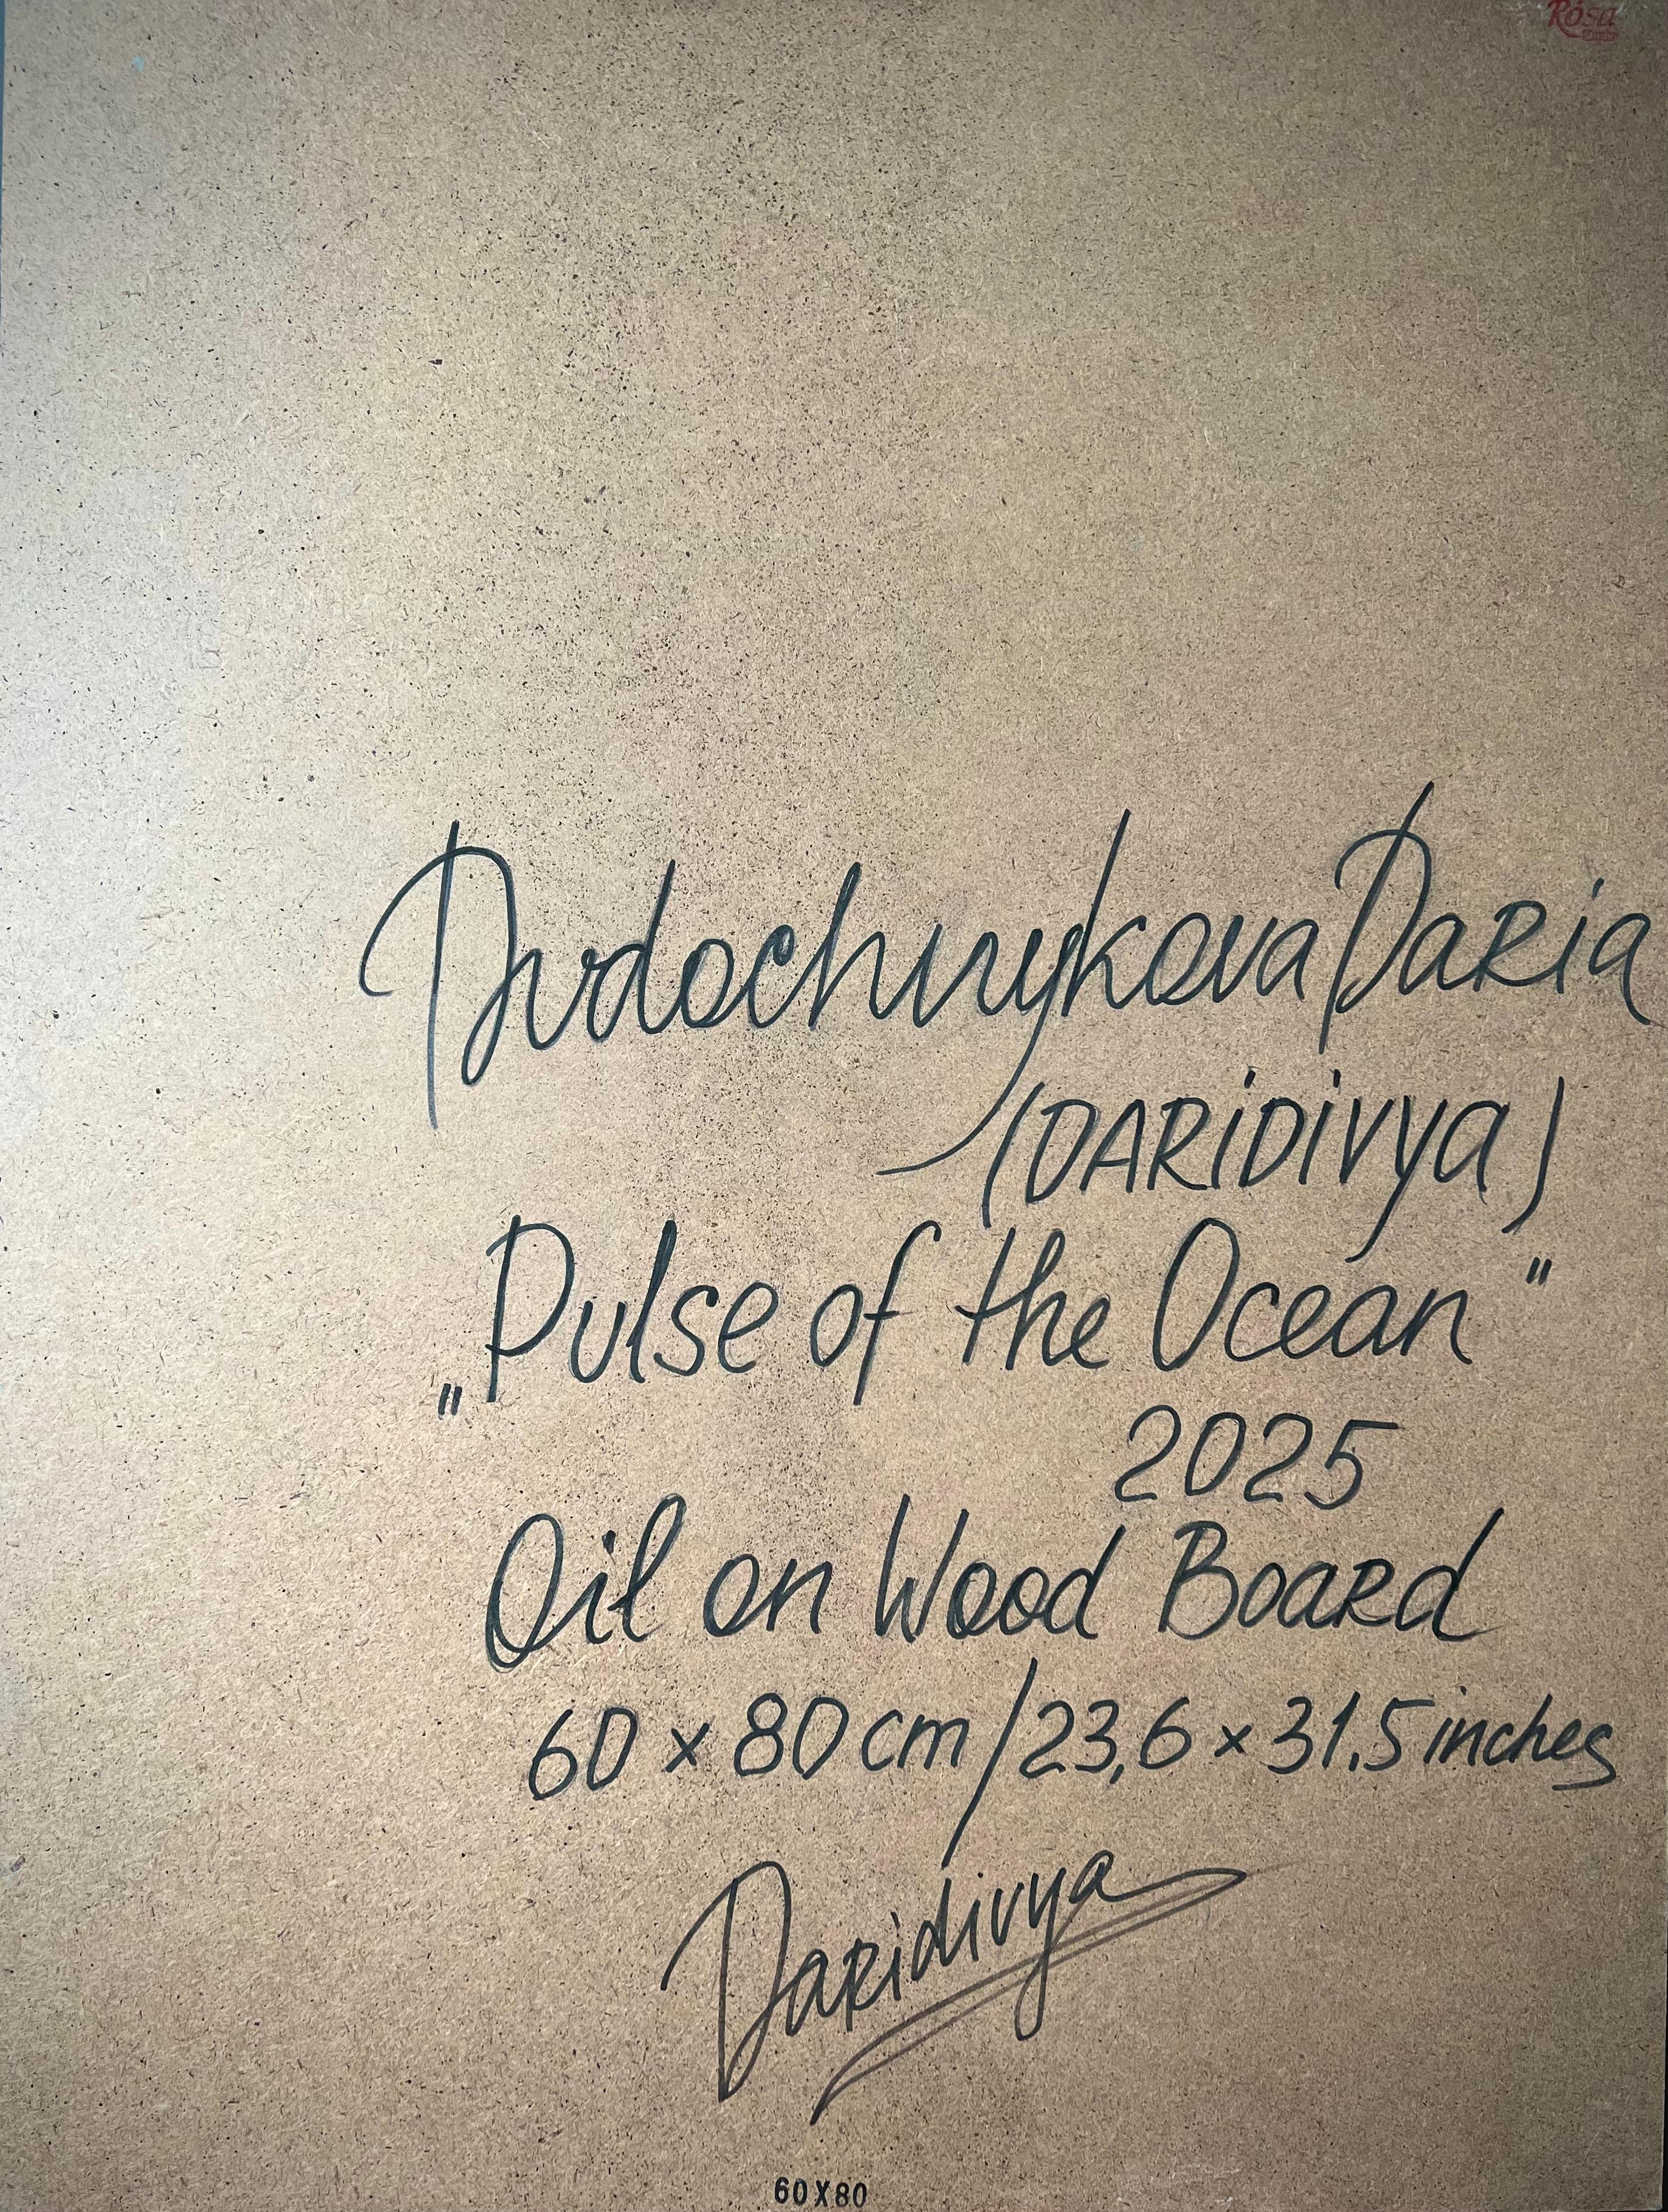 Rosa
Dudochnykova Daria
(DARiDiVya)
„Pulse of the Ocean"
2025
Oil on Wood Board
60 x 80 cm/23,6 x 31.5 inches
Daridivya
60X80